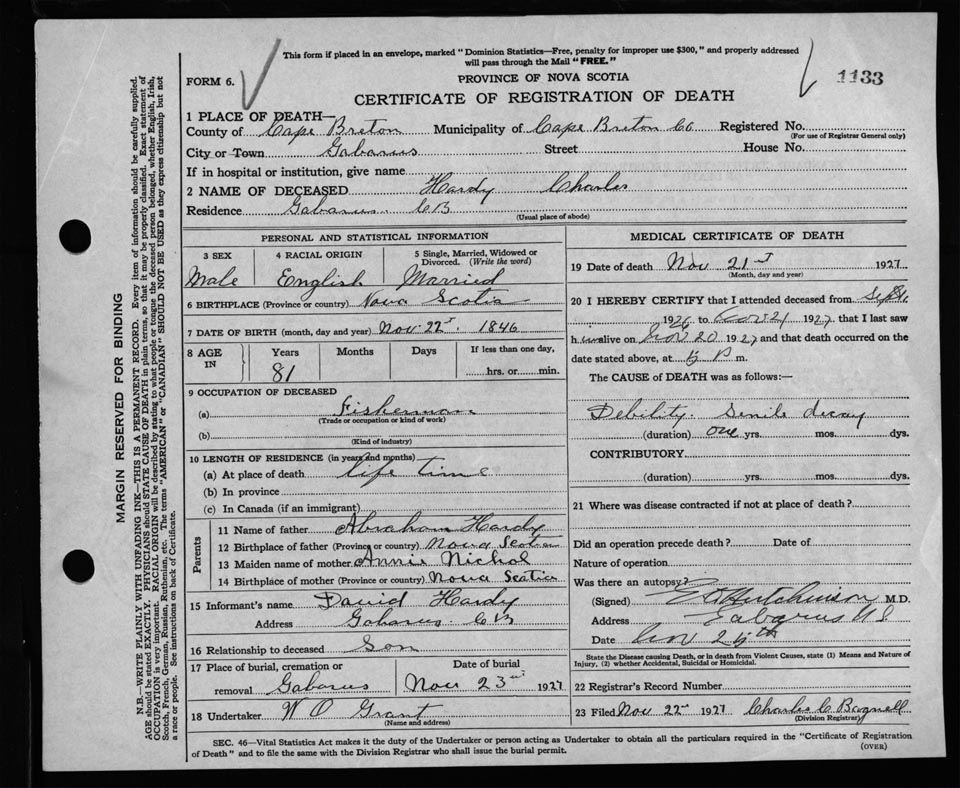 This form if placed in an envelope, marked "Dominion Statistics—Free, penalty for improper use $300," and properly addressed
will pass through the Mail "FREE."
FORM 6.
PROVINCE OF NOVA SCOTIA
1133
CERTIFICATE OF REGISTRATION OF DEATH
1 PLACE OF DEATH—
County of Cape Breton Municipality of Cape Breton Co Registered No.
(For use of Registrar General only)
City or Town Gabarus Street House No.
If in hospital or institution, give name
2 NAME OF DECEASED Hardy Charles
Residence Gabarus CB
(Usual place of abode)
PERSONAL AND STATISTICAL INFORMATION
3 SEX 4 RACIAL ORIGIN 5 Single, Married, Widowed or Divorced. (Write the word)
Male English Married
6 BIRTHPLACE (Province or country) Nova Scotia
7 DATE OF BIRTH (month, day and year) Nov 22 1846
8 AGE IN Years Months Days If less than one day,
81 hrs. or min.
9 OCCUPATION OF DECEASED
(a) Fisherman
(Trade or occupation or kind of work)
(b)
(Kind of industry)
10 LENGTH OF RESIDENCE (in years and months)
(a) At place of death life time
(b) In province
(c) In Canada (if an immigrant)
Parents
11 Name of father Abraham Hardy
12 Birthplace of father (Province or country) Nova Scotia
13 Maiden name of mother Annie Nichol
14 Birthplace of mother (Province or country) Nova Scotia
15 Informant's name David Hardy
Address Gabarus CB
16 Relationship to deceased Son
17 Place of burial, cremation or Date of burial
removal Gabarus Nov 23 1927
18 Undertaker W O Grant
(Name and address)
MEDICAL CERTIFICATE OF DEATH
19 Date of death Nov 21st 1927
(Month, day and year)
20 I HEREBY CERTIFY that I attended deceased from
1926 to Nov 21 1927 that I last saw
h im alive on Nov 20 1927 and that death occurred on the
date stated above, at P m.
The CAUSE of DEATH was as follows:—
Debility. Senile decay
(duration) one yrs. mos. dys.
CONTRIBUTORY
(duration) yrs. mos. dys.
21 Where was disease contracted if not at place of death?
Did an operation precede death? Date of
Nature of operation
Was there an autopsy?
(Signed) Hutchinson M.D.
Address Gabarus N S
Date Nov
State the Disease causing Death, or in death from Violent Causes, state (1) Means and Nature of
Injury, (2) whether Accidental, Suicidal or Homicidal.
22 Registrar's Record Number
23 Filed Nov 22nd 1927 Charles C Bagnell
(Division Registrar)
SEC. 46—Vital Statistics Act makes it the duty of the Undertaker or person acting as Undertaker to obtain all the particulars required in the "Certificate of Registration
of Death" and to file the same with the Division Registrar who shall issue the burial permit.
(OVER)
MARGIN RESERVED FOR BINDING
N.B.—WRITE PLAINLY WITH UNFADING INK—THIS IS A PERMANENT RECORD. Every item of information should be carefully supplied.
AGE should be stated EXACTLY. PHYSICIANS should STATE CAUSE OF DEATH in plain terms, so that it may be properly classified. Exact statement of
OCCUPATION is very important. RACIAL ORIGIN will be described by stating to what people or tongue the deceased person belonged, whether English, Irish,
Scotch, French, German, Russian, Ruthenian, etc. The terms "AMERICAN" or "CANADIAN" SHOULD NOT BE USED as they express citizenship but not
a race or people. See instructions on back of Certificate.